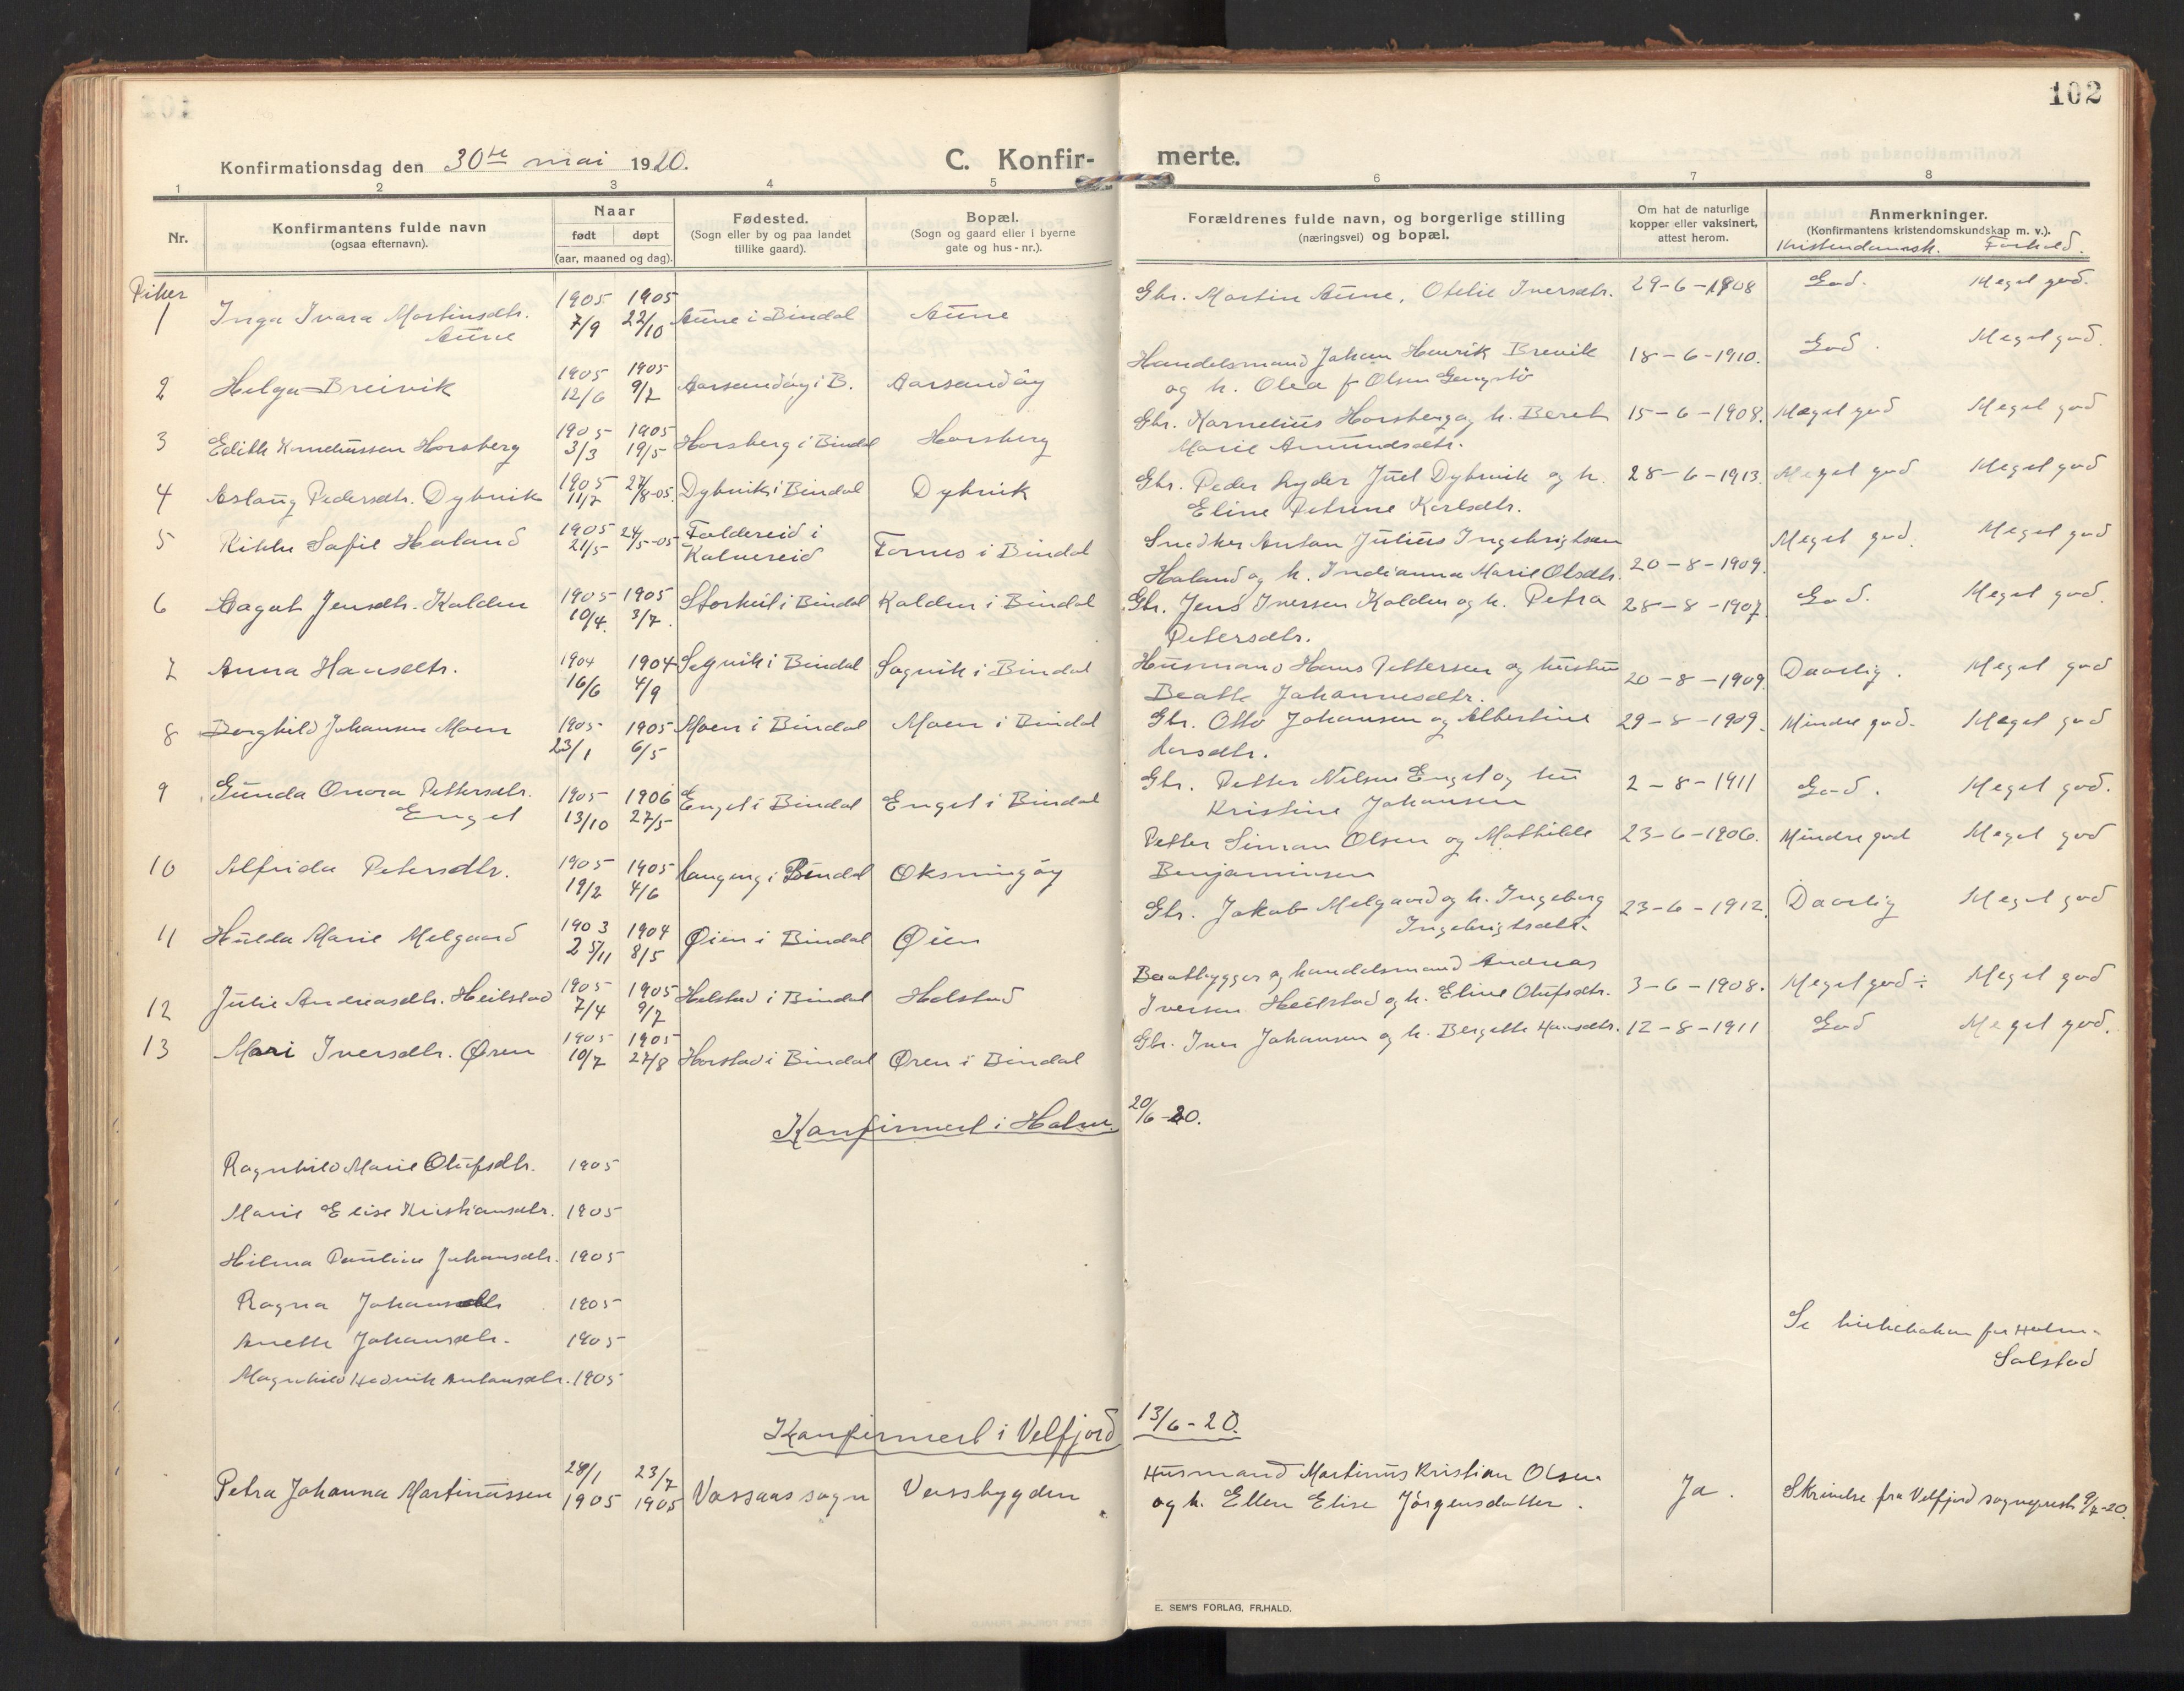 102
Konfirmationsdag den 30te mai 1920.
C. Konfir- merte.
1 2 3 4 5 6 7 8
Nr.
Konfirmantens fulde navn
(ogsaa efternavn).
Naar
født døpt
(aar, maaned og dag).
Fødested.
(Sogn eller by og paa landet
tillike gaard).
Bopæl.
(Sogn og gaard eller i byerne
gate og hus-nr.).
Forældrenes fulde navn, og borgerlige stilling
(næringsvei) og bopæl.
Om hat de naturlige
kopper eller vaksinert,
attest herom.
Anmerkninger.
(Konfirmantens kristendomskundskap m. v.).
Kristendomsk. Forhold.
Piker
1 Inga Ivara Martinsdtr. 1905 1905 Aune i Bindal Aune Gbr. Martin Aune, Otelie Iversdtr. 29-6-1908 God. Meget god.
Aune 7/9 22/10
2 Helga Breivik 1905 1905 Aarsandøy i B. Aarsandøy Handelsmand Johan Henrik Brevik 18-6-1910. God. Meget god.
12/6 9/7 og h. Olea f Olsen
3 Edith Korneliussen Horsberg 1905 1905 Horsberg i Bindal Horsberg Gbr. Kornelius Horsberg og h. Beret 15-6-1908. Meget god Meget god
3/3 19/5 Marie Amundsdtr.
4 Aslaug Pedersdtr. Dybvik 1905 27/8-05. Dybvik i Bindal Dybvik Gbr. Peder Ryder Juel Dybvik og h. 28-6-1913. Meget god Meget god
11/7 Eline Petrine Karlsdtr.
5 Rikke Sofie Haland 1905 24/5-05 Foldereid i Fornes i Bindal Snedker Anton Julius Ingebrigtsen Meget god. Meget god
21/5 Kalvereid Haland og h. Indianna Marie Olsdtr. 20-8-1909.
6 Aagot Jensdtr. Kalden 1905 1905 Storheil i Bindal Kalden i Bindal Gbr. Jens Iversen Kalden og h. Petra 28-8-1907. God. Meget god.
10/4. 3/7. Petersdtr.
7 Anna Hansdtr. 1904 1904 Sagvik i Bindal Sagvik i Bindal Husmand Hans Pettersen og hustru 20-8-1909. Daarlig. Meget god
16/6 4/9 Beatte Johannesdtr.
8 Borghild Johansen Moen 1905 1905 Moen i Bindal Moen i Bindal Gbr. Otto Johansen og Albertine 29-8-1909. Mindre god. Meget god
23/1 6/5 Larsdtr.
9 Gunda Onora Pettersdtr. 1905 1906 Enget i Bindal Enget i Bindal Gbr. Petter Nilsen Enget og hu 2-8-1911 God. Meget god.
Enget 13/10 27/5 Kristine Johansen
10 Alfrida Petersdtr. 1905 1905 Langeng i Bindal Oksningøy Petter Simon Olsen og Mathilde 23-6-1906. Mindre god Meget god
19/2 4/6 Benjaminsen
11 Hulda Marie Melgaard 1903 1904 Øien i Bindal Øien Gbr. Jakob Melgaard og h. Ingeborg 23-6-1912. Daarlig Meget god
25/11 8/5 Ingebrigtsdtr.
12 Julie Andreasdtr. Heilstad 1905 1905 Helstad i Bindal Helstad Baatbygger og handelsmand Andreas 3-6-1908. Meget god ÷ Meget god
7/4 9/7 Iversen Heilstad og h. Eline Olufsdtr.
13 Mari Iversdtr. Øren 1905 1905 Horstad i Bindal Øren i Bindal Gbr. Iver Johansen og h. Bergitte Hansdtr. 12-8-1911 God Meget god.
10/7 27/8
Konfirmert i Holm 20/6-20.
Ragnhild Marie Olufsdtr. 1905
Marie Elise Kristiansdtr. 1905
Hilma Pauline Johansdtr. 1905
Ragna Johansdtr 1905
Anette Johansdtr. 1905
Magnhild Hedvik Antonsdtr. 1905
Se kirkeboken for Holm-
Solstad
Konfirmert i Velfjord 13/6-20.
Petra Johanna Martinussen 28/1 1905 23/7 1905 Vassaas sogn Vassbygden Husmand Martinus Kristian Olsen
og h. Ellen Elise Jørgensdatter. Ja. Skrivelse fra Velfjord sogneprest 9/7-20.
E. SEM'S FORLAG, FR.HALD.